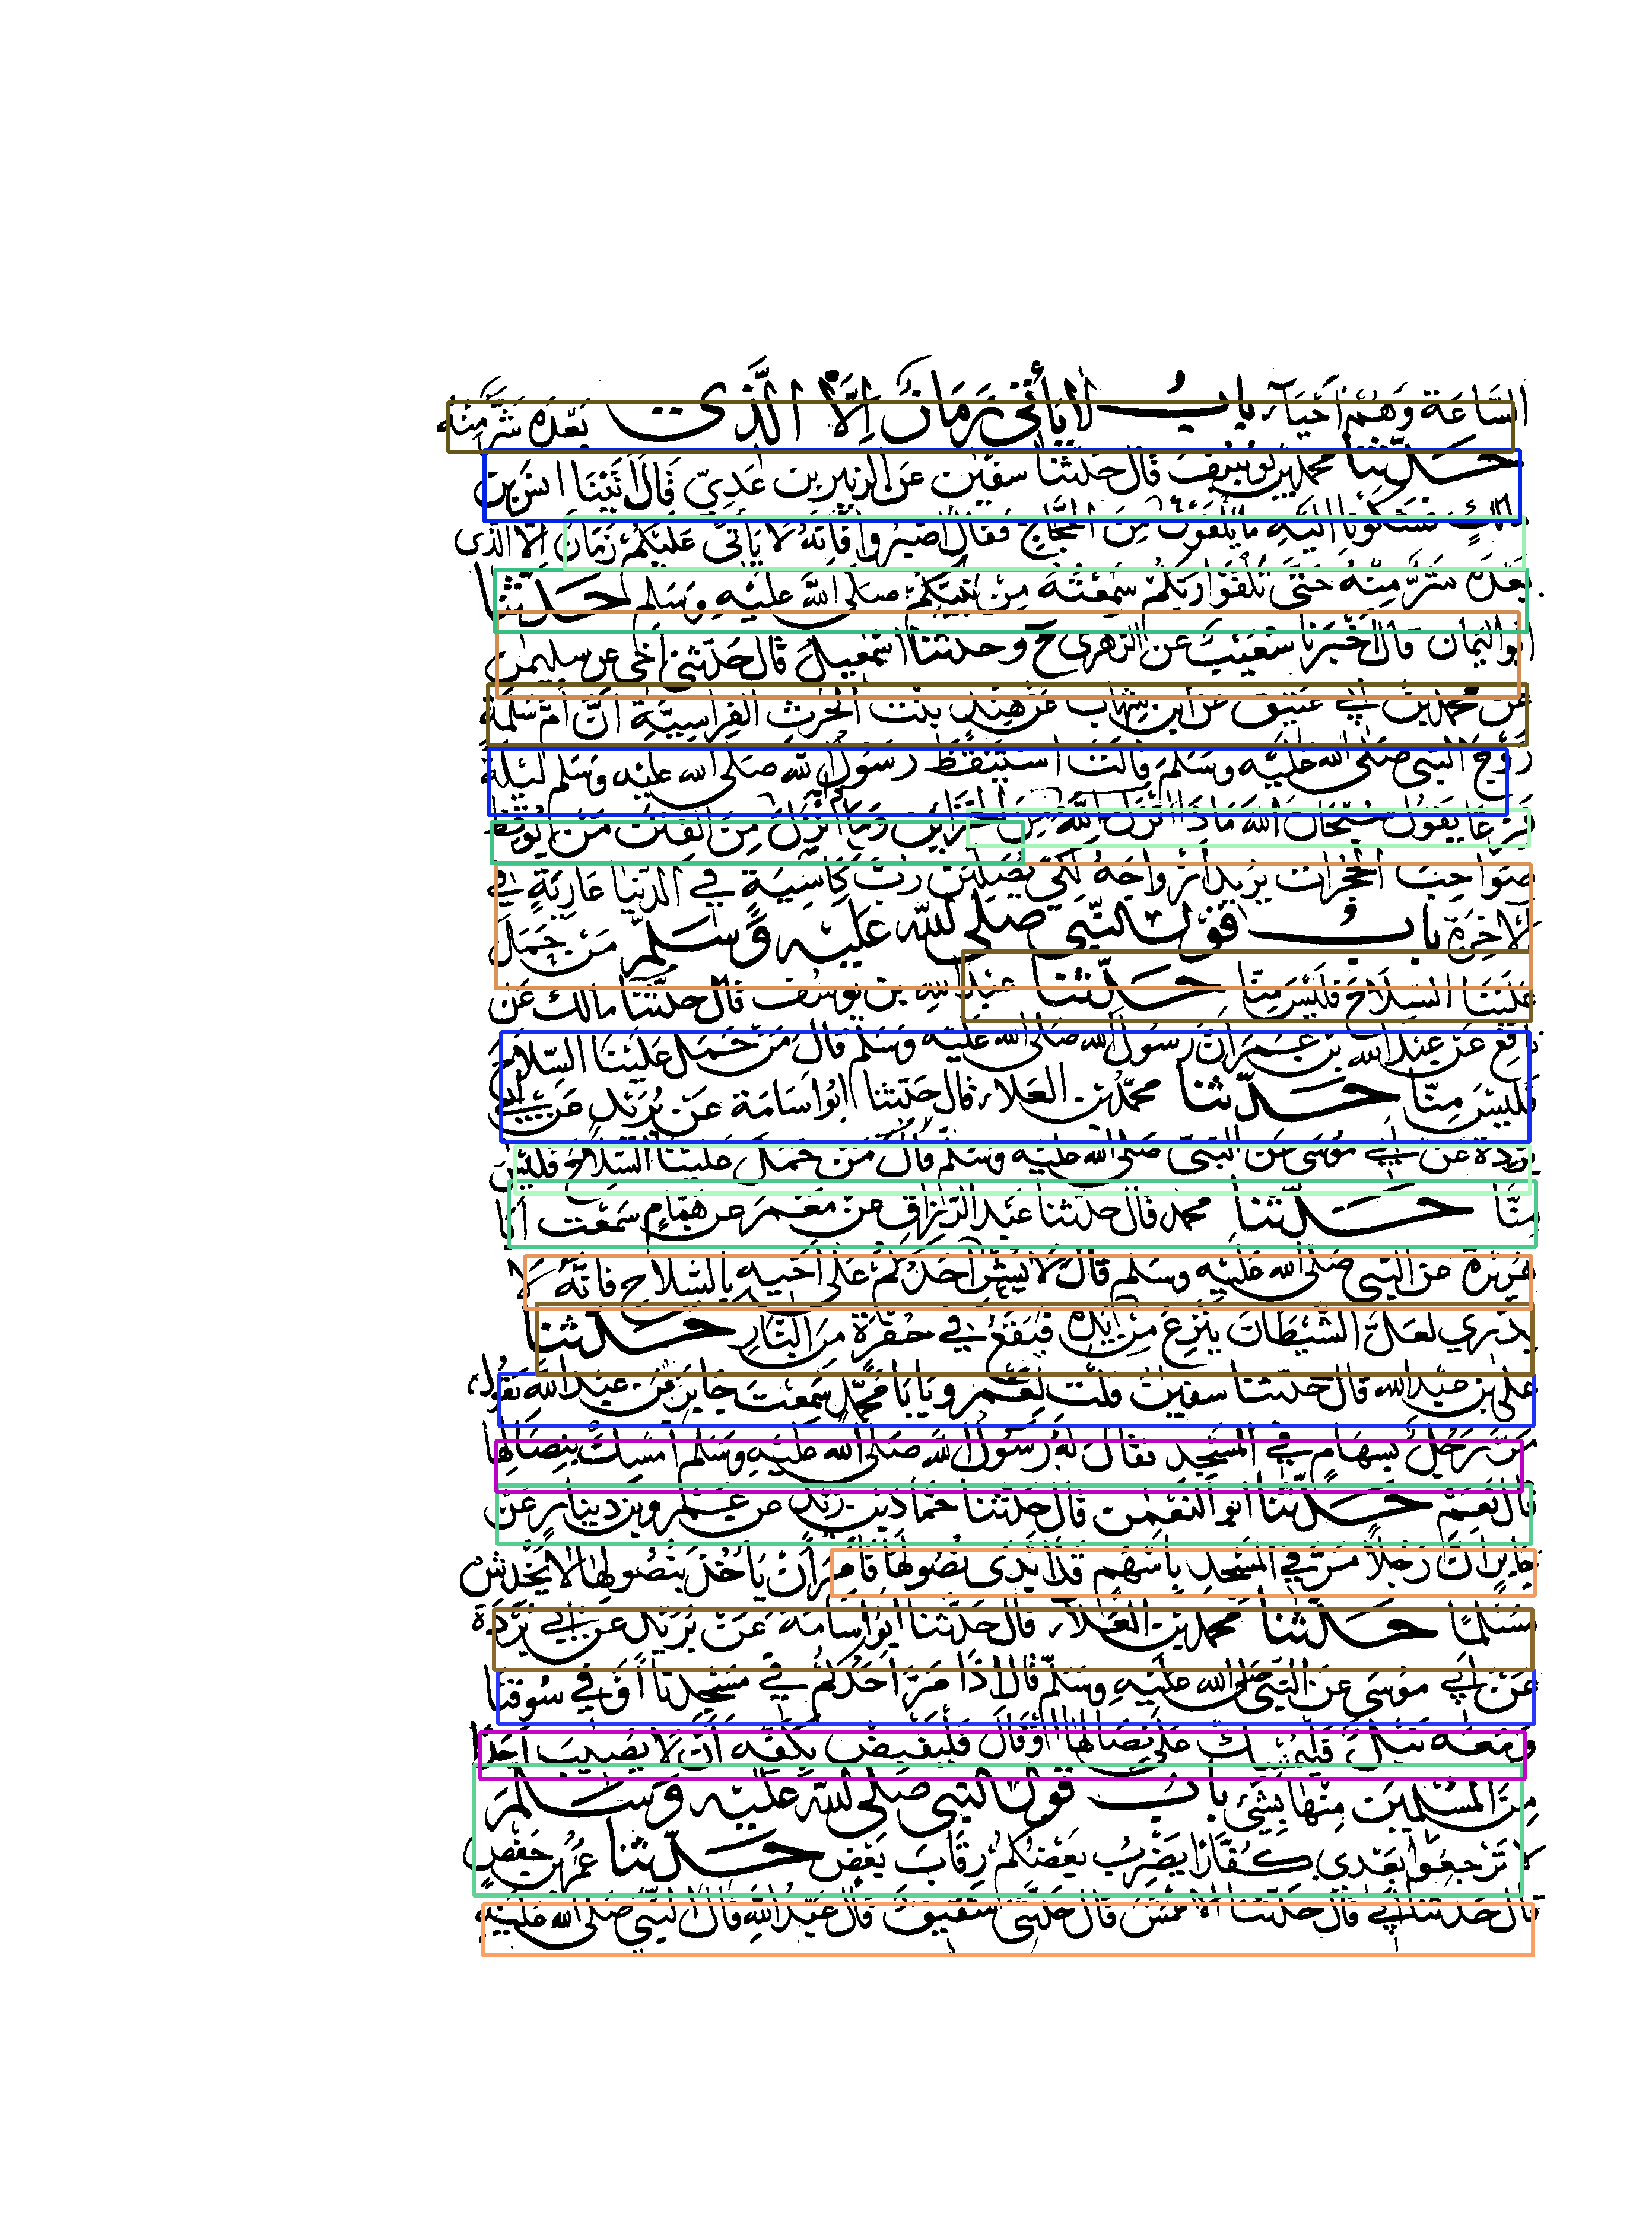 الساعة وهم احياء باب لا يأتى زمان الا الذى بعده شر منه
حدثنا محمد بن يوسف قال حدثنا سفين عن الزبير بن عدى قال اتينا انس بن
مالك فشكونا اليه ما يلقون من الحجاج فقال اصبروا فانه لا يأتى عليكم زمان الا الذى
بعده شر منه حتى تلقوا ربكم سمعته من نبيكم صلى الله عليه وسلم حدثنا
ابو اليمان قال اخبرنا شعيب عن الزهرى ح وحدثنا اسمعيل قال حدثنى اخى عن سليمن
عن محمد بن ابي عتيق عن ابن شهاب عن هند بنت الحرث الفراسية ان ام سلمة
زوج النبى صلى الله عليه وسلم قالت استيقظ رسول الله صلى الله عليه وسلم ليلة
فزعا يقول سبحان الله ماذا انزل الله من الخزاين وما انزل من الفتن من يوقظ
صواحب الحجرات يريد ازواجه لكى يصلين رب كاسية في الدنيا عارية في
الاخرة باب قول النبى صلى الله عليه وسلم من حمل
علينا السلاح فليس منا حدثنا عبد الله بن يوسف قال حدثنا مالك عن
نافع عن عبد الله بن عمر ان رسول الله صلى الله عليه وسلم قال من حمل علينا السلاح
فليس منا حدثنا محمد بن العلاء قال حدثنا ابو اسامة عن بريد عن ابي
بردة عن ابي موسى عن النبى صلى الله عليه وسلم قال من حمل علينا السلاح فليس
منا حدثنا محمد قال حدثنا عبد الرزاق عن معمر عن همام سمعت ابا
هريرة عن النبى صلى الله عليه وسلم قال لا يشير احدكم على اخيه بالسلاح فانه لا
يدري لعل الشيطان ينزع من يده فيقع في حفرة من النار حدثنا
على بن عبد الله قال حدثنا سفين قال قلت لعمرو يا با محمد سمعت جابر بن عبد الله يقول
مر رجل بسهام في المسجد فقال له رسول الله صلى الله عليه وسلم امسك بنصالها
قال نعم حدثنا ابو النعمن قال حدثنا حماد بن زيد عن عمرو بن دينار عن
جابر ان رجلا مر في المسجد باسهم قد ابدى نصولها فامر ان ياخذ بنصولها لا يخدش
مسلما حدثنا محمد بن العلاء قال حدثنا ابو اسامة عن بريد عن ابي بردة
عن ابي موسى عن النبى صلى الله عليه وسلم قال اذا مر احدكم في مسجدنا او في سوقنا
ومعه نبل فليمسك على نصالها او قال فليقبض بكفه ان لا يصيب احدا
من المسلمين منها بشئ باب قول النبى صلى الله عليه وسلم
لا ترجعوا بعدي كفارا يضرب بعضكم رقاب بعض حدثنا عمر بن حفص
قال حدثنا ابي قال حدثنا الاعمش قال حدثنى شقيق قال قال عبد الله قال النبى صلى الله عليه